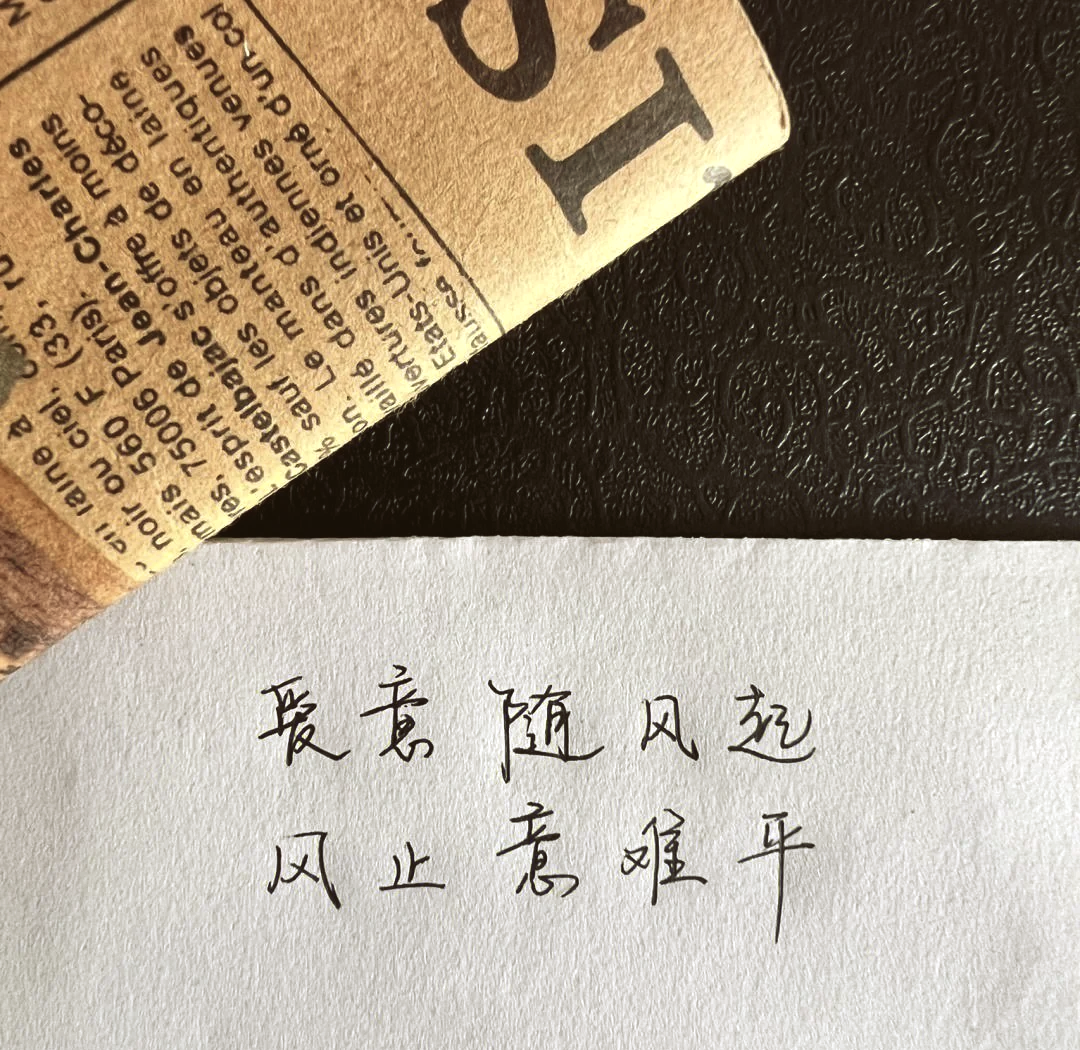 SI
en laine à
noir ou ciel,
mais 560 F (33, ru
75006 Paris).
L'esprit de Jean-Charles
Castelbajac s'offre à moins
% sauf les objets de déco-
on. Le manteau en laine
taillé dans d'authentiques
vertures indiennes venues
États-Unis et orné d'un col
爱意随风起
风止意难平